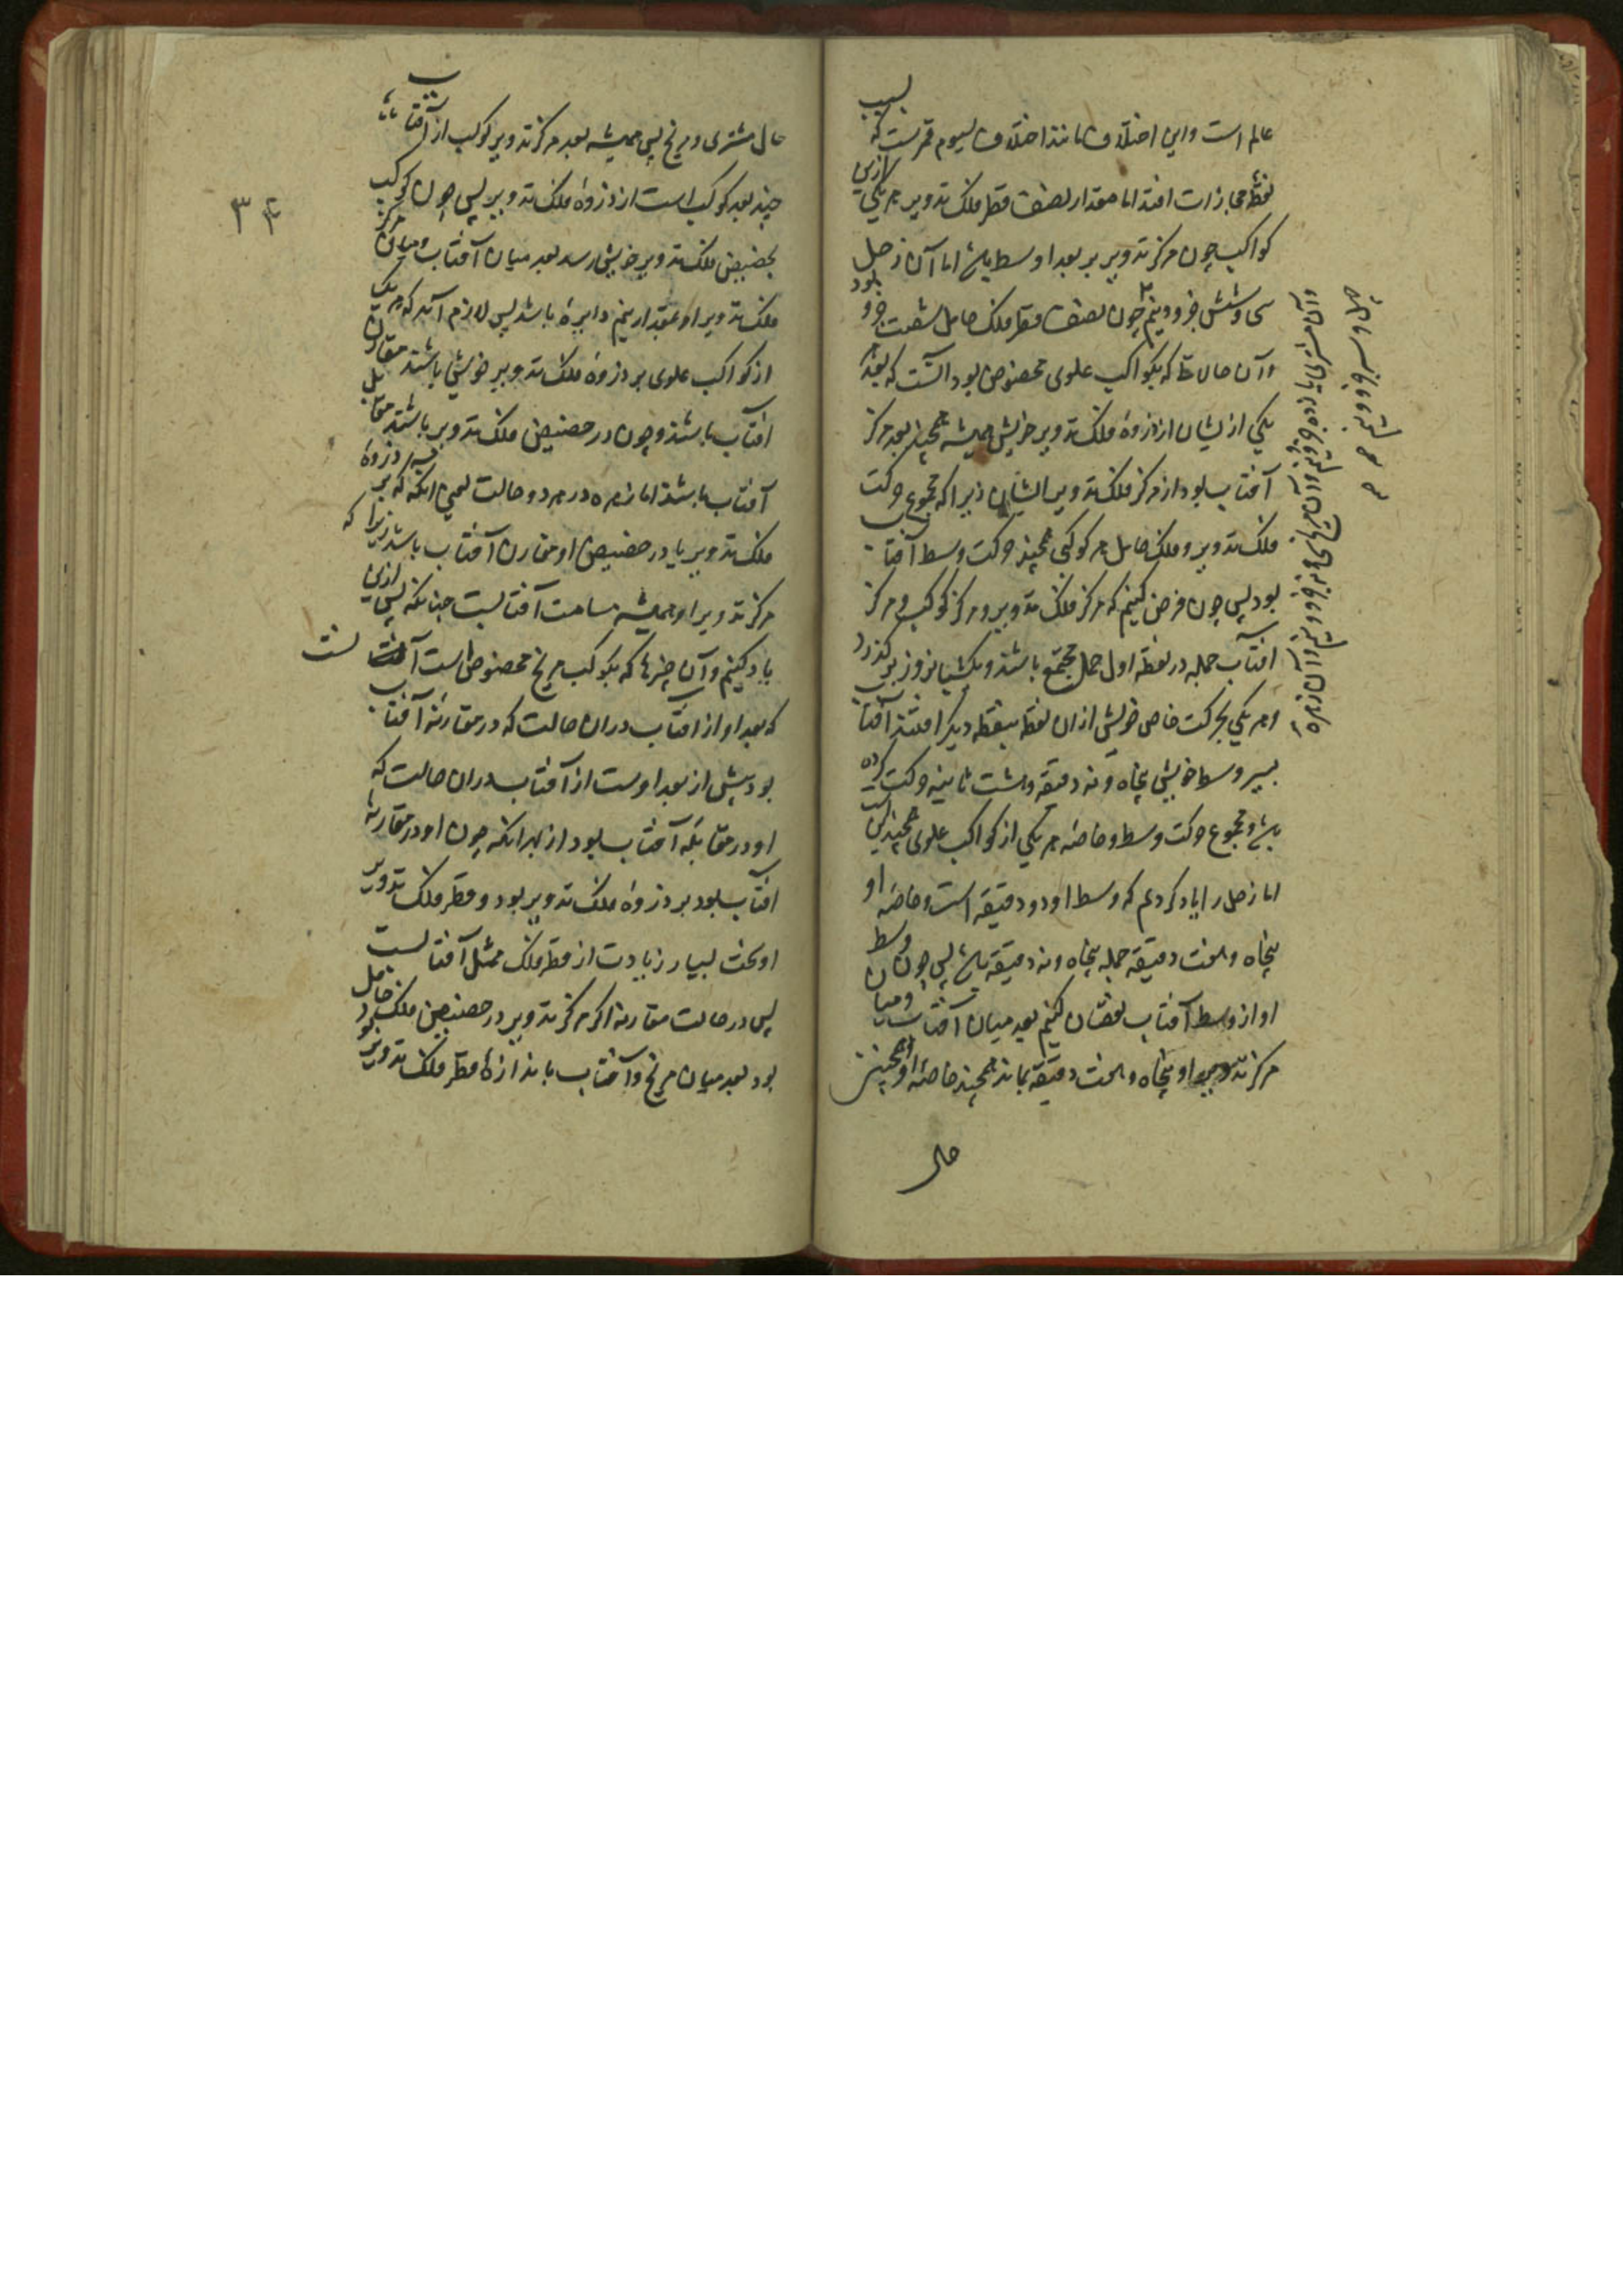 عالم است و این اختلاف مانند اختلاف سیوم قمرست که بسبب
نقطه محاذات افتد اما مقدار نصف قطر فلک تدویر هر یکی ازین
کواکب چون مرکز تدویر بر بعد اوسط باشد اما آن زحل
شش جزو و نیم چون نصف قطر فلک حامل شصت جزو بود
و آن حالات که بکواکب علوی مخصوص بود آنست که بعد
یکی ازیشان از ذروه فلک تدویر خویش همیشه همچند بعد مرکز
آفتاب بود از مرکز فلک تدویر ایشان زیرا که مجموع حرکت
فلک تدویر و فلک حامل هر کوکبی همچند حرکت وسط آفتاب
بود پس چون فرض کنیم که مرکز فلک تدویر و مرکز کوکب و مرکز
آفتاب جمله در نقطه اول حمل مجتمع باشند و یکشبانروز برین گذرد
و هر یکی بحرکت خاص خویش از ان نقطه بنقطه دیگر افتند آفتاب
بسیر وسط خویش پنجاه و نه دقیقه و هشت ثانیه حرکت کرده
باشد و مجموع حرکت وسط و خاصه هر یکی از کواکب علوی همچندین است
اما زحل را یاد کردیم که وسط او دو دقیقه است و خاصه او
پنجاه و هفت دقیقه جمله پنجاه و نه دقیقه باشد پس چون وسط
او از وسط آفتاب نقصان کنیم بعد میان آفتاب و میان
مرکز تدویر او پنجاه و هفت دقیقه بماند همچند خاصه او و همچنین
حال
و آن مشتری یازده جزو و نیم و آن مریخ سی و نه جزو و نیم و آن زهره
چهل و سه جزو و نیم
۳۴
حال مشتری و مریخ پس همیشه بعد مرکز تدویر کوکب از آفتاب
چند بعد کوکب است از ذروه فلک تدویر پس چون کوکب
بحضیض فلک تدویر خویش رسد بعد میان آفتاب و میان مرکز
فلک تدویر او بمقدار نیم دایره باشد پس لازم آید که هر یک
از کواکب علوی بر ذروه فلک تدویر خویش باشند مقارن
آفتاب باشند و چون در حضیض فلک تدویر باشند مقابل
آفتاب باشند اما زهره در هر دو حالت یعنی انکه که بر ذروه
فلک تدویر یا در حضیض او مقارن آفتاب باشد زیرا که
مرکز تدویر او همیشه مسامت آفتابست چنانکه پس ازین
یاد کنیم و آن چیزها که بکوکب مریخ مخصوص است آنست
که بعد او از آفتاب در ان حالت که در مقارنه آفتاب
بود بیش از بعد اوست از آفتاب در ان حالت که
او در مقابله آفتاب بود از بهر انکه چون او در مقارنه
آفتاب بود بر ذروه فلک تدویر بود و قطر فلک تدویر
او سخت بسیار زیادت از قطر فلک ممثل آفتابست
پس در حالت مقارنه اگر مرکز تدویر در حضیض فلک حامل بود
بود بعد میان مریخ و آفتاب باندازه قطر فلک تدویر